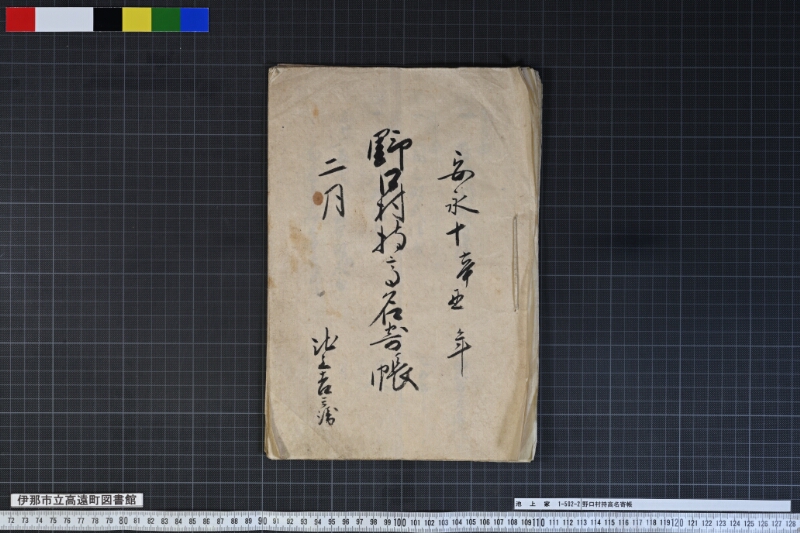 安永十辛丑年
野口村持高名寄帳
二月
池上吉
伊那市立高遠町図書館
池上家 1-502-2 野口村持高名寄帳
72 73 74 75 76 77 78 79 80 81 82 83 84 85 86 87 88 89 90 91 92 93 94 95 96 97 98 99 100 101 102 103 104 105 106 107 108 109 110 111 112 113 114 115 116 117 118 119 120 121 122 123 124 125 126 127 128